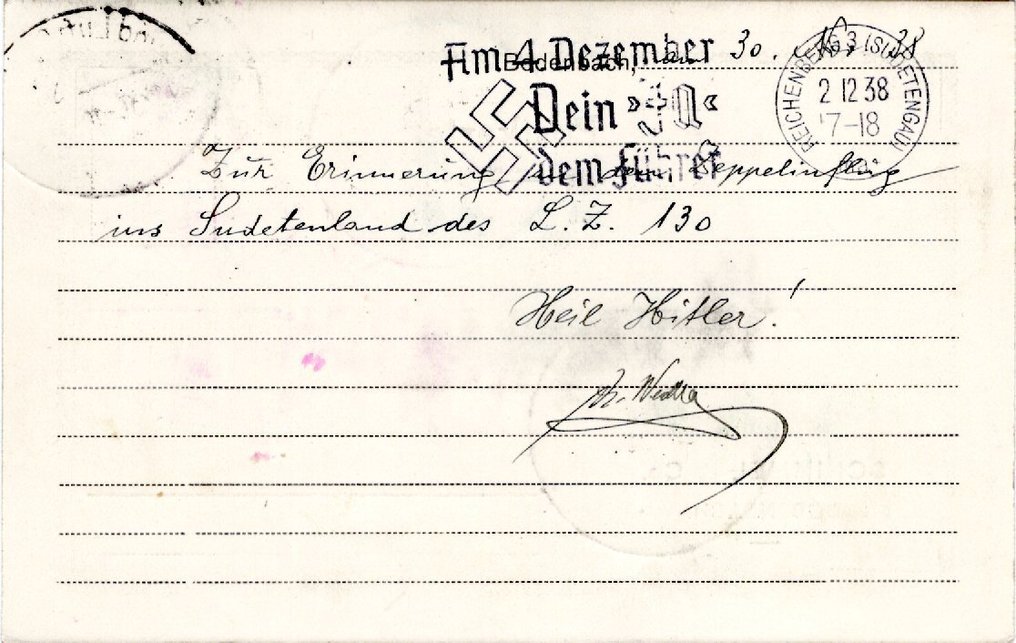 Bodenbach, am 30. 38
Am 4. Dezember
Dein »Ja«
dem Führer
REICHENBERG 3 (SUDETENGAU)
2 12 38
17-18
Zur Erinnerung an den Zeppelinflug
ins Sudetenland des L. Z. 130
Heil Hitler!